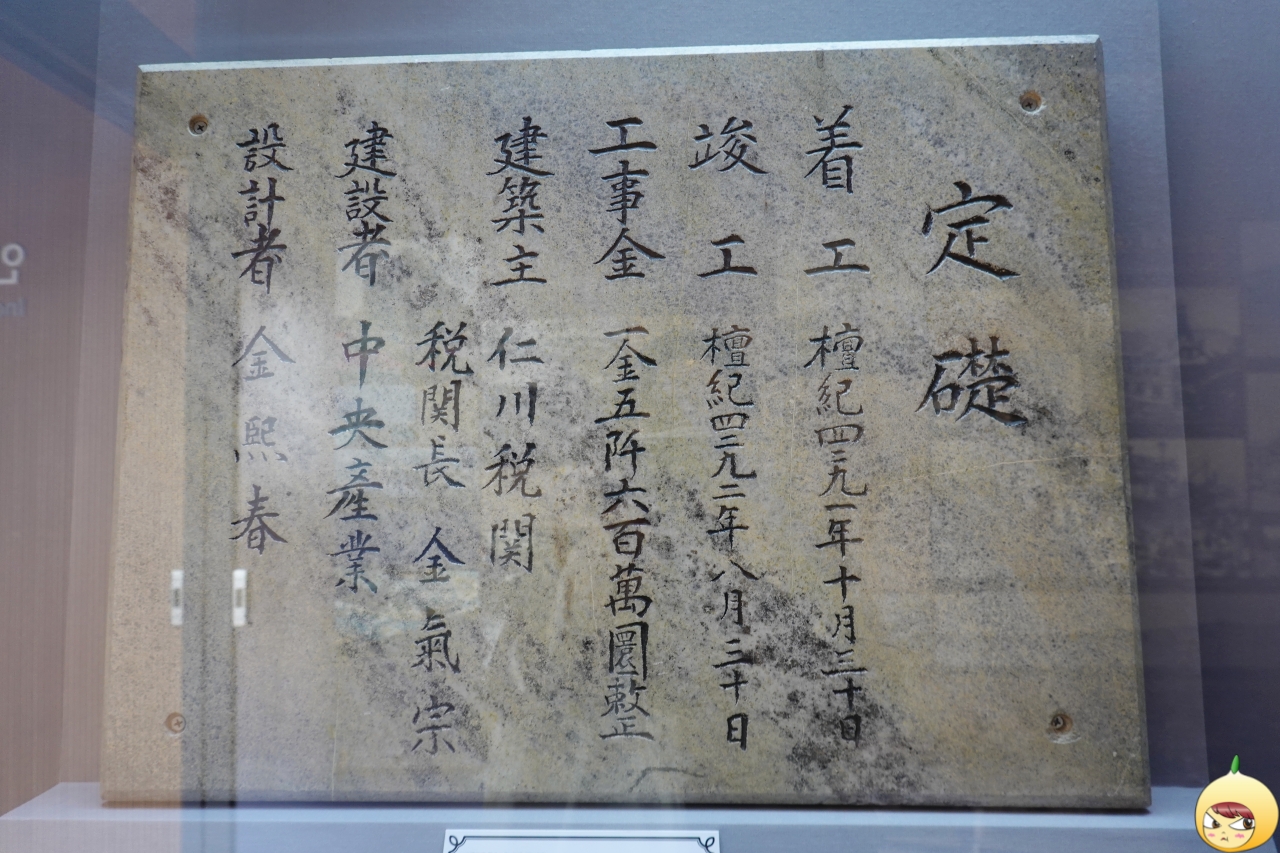 定礎
着工 檀紀四二九一年十月三十日
竣工 檀紀四二九二年八月三十日
工事金 一金五阡六百萬圜整
建築主 仁川税関
税関長 金氣宗
建設者 中央産業
設計者 金熙春
인